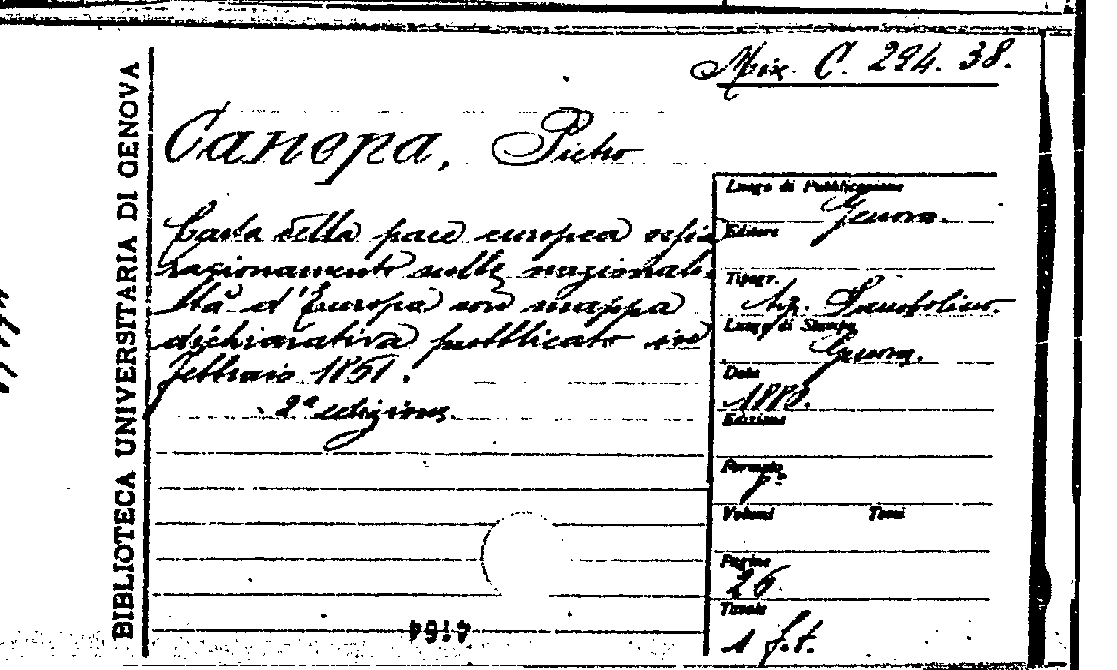 BIBLIOTECA UNIVERSITARIA DI GENOVA
Misc. C. 294. 38.
Canepa, Pietro
Carta della pace europea ossia
ragionamento sulle nazionali-
tà d'Europa con mappa
dichiarativa pubblicato in
febbraio 1851.
2ª edizione.
Luogo di Pubblicazione
Genova.
Editore
Tipogr.
Luogo di Stampa
Genova.
Data
Edizione
Formato
Volumi Tomi
Pagine
26
Tavole
1 f.t.
4164